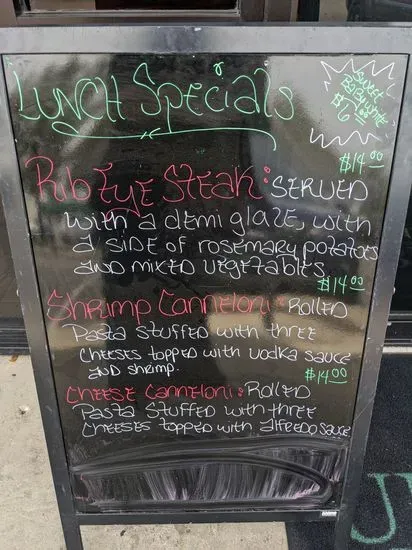 Lunch Specials
Sweet
Baby White
$6.00
$14.00
Rib Eye Steak: Served
with a demi glaze, with
a side of rosemary potatoes
and mixed vegetables
$14.00
Shrimp Canneloni: Rolled
Pasta stuffed with three
cheeses topped with vodka sauce
and shrimp.
$14.00
Cheese Canneloni: Rolled
Pasta stuffed with three
cheeses topped with alfredo sauce